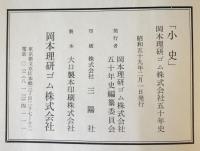 「小史」
岡本理研ゴム株式会社五十年史
昭和五十九年二月一日発行
発行者
岡本理研ゴム株式会社
五十年史編纂委員会
印刷 株式会社 三陽社
製本 大日製本印刷株式会社
岡本理研ゴム株式会社